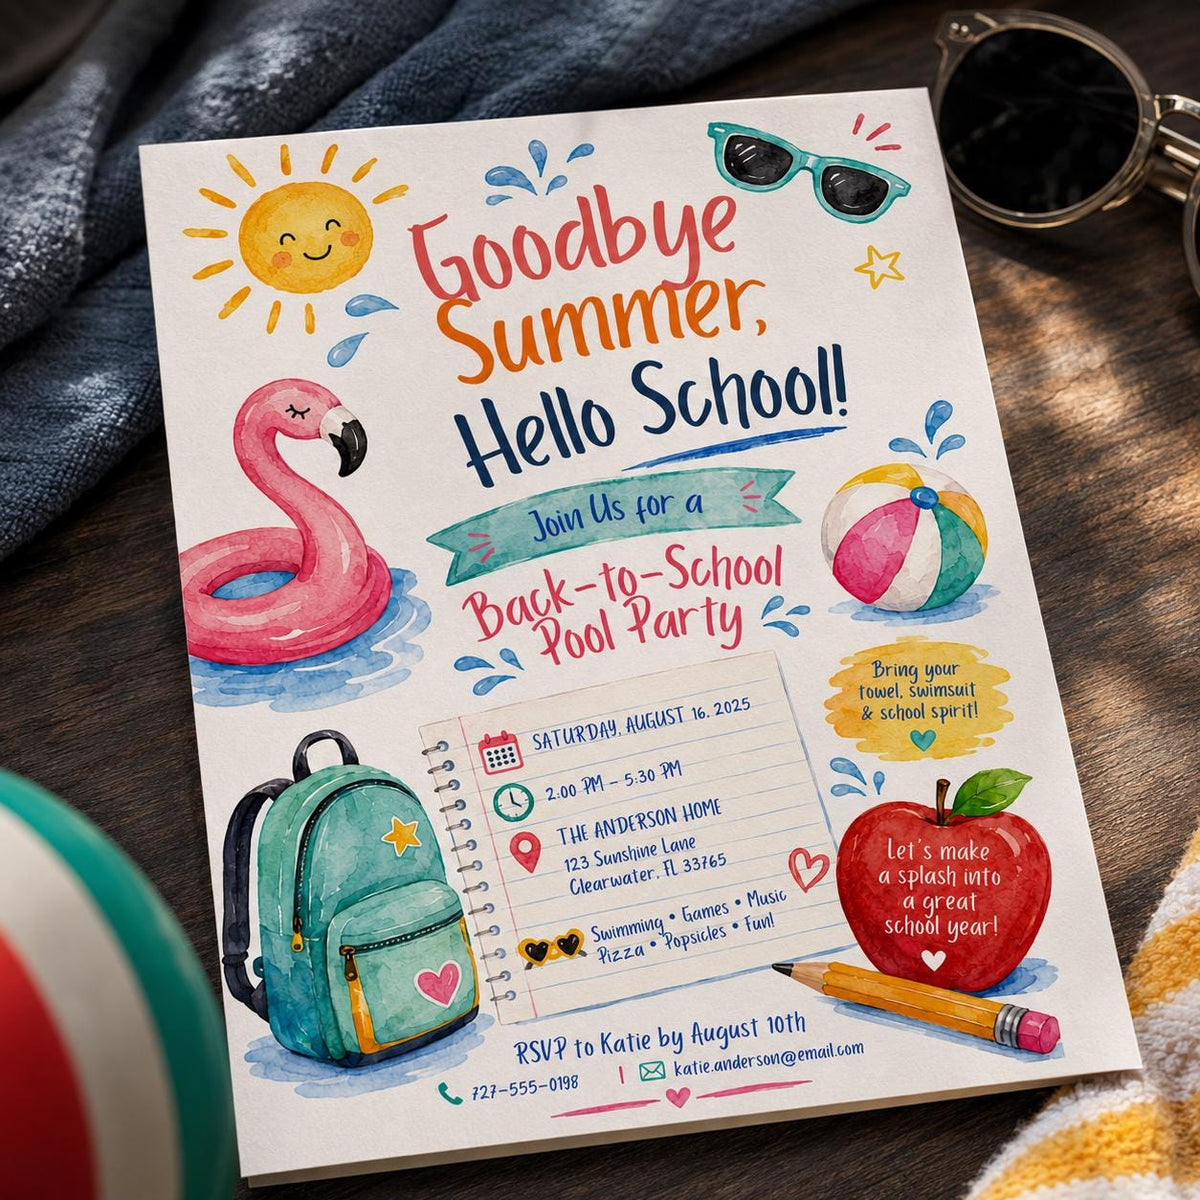 Goodbye
Summer,
Hello School!
Join Us for a
Back-to-School
Pool Party
Bring your
towel, swimsuit
& school spirit!
SATURDAY, AUGUST 16, 2025
2:00 PM – 5:30 PM
THE ANDERSON HOME
123 Sunshine Lane
Clearwater, FL 33765
Swimming • Games • Music
Pizza • Popsicles • Fun!
Let's make
a splash into
a great
school year!
RSVP to Katie by August 10th
727-555-0198 | katie.anderson@email.com